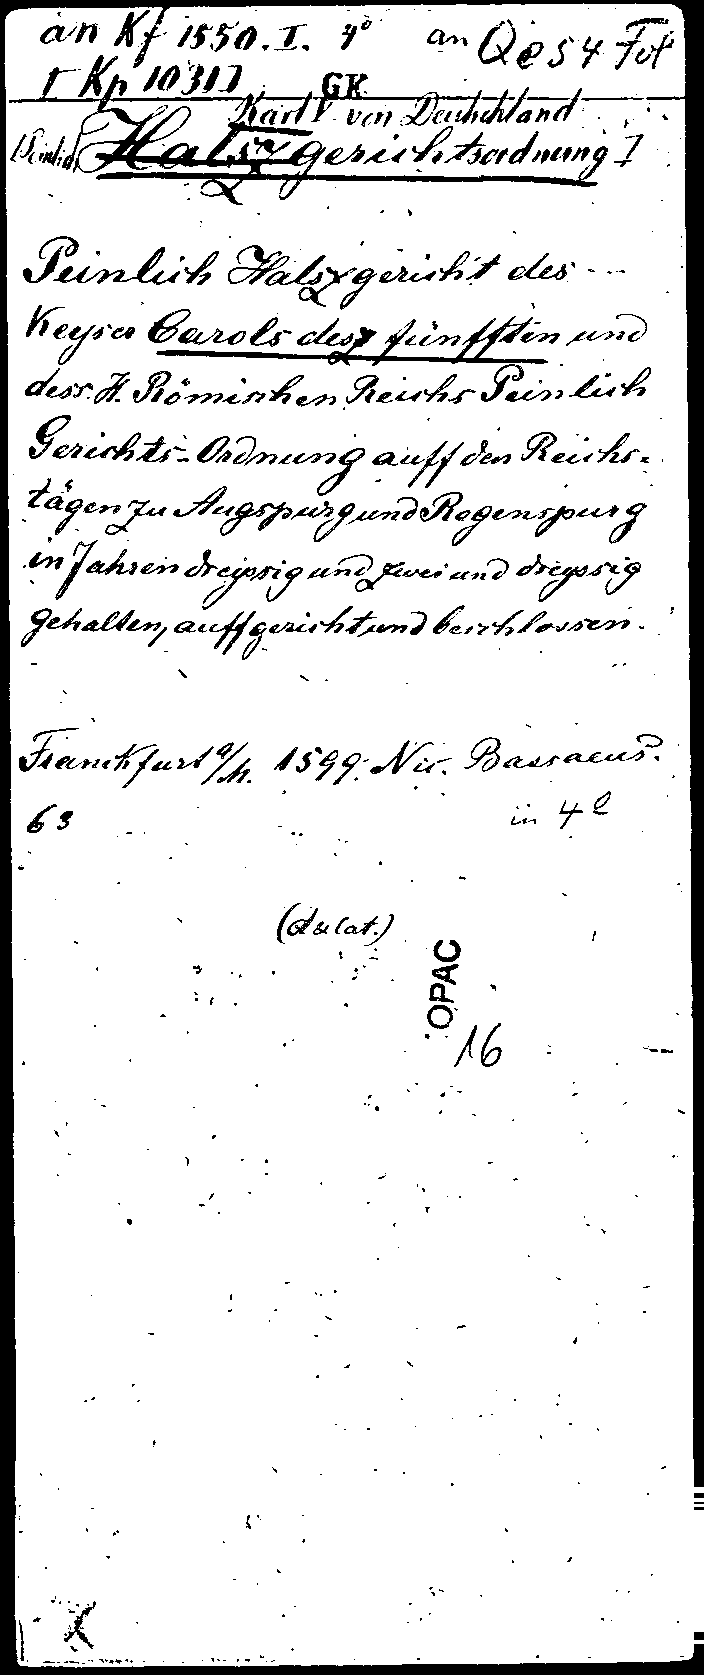 an Kf 1550. I. 4° an Qe 54 Fol
r Kp 10317 GK
Karl V von Deutschland
[Peinlich] Halszgerichtsordnung]
Peinlich Halszgericht des ...
Keyser Carols desz fünfften und
dess. H. Römischen Reichs Peinlich
Gerichts-Ordnung auff den Reichs-
tägen zu Augspurg und Regenspurg
in Jahren dreyssig und zwei und dreyssig
gehalten, auffgericht und beschlossen.
Franckfurt a/M. 1599. Nic. Bassaeus.
63 in 4°
OPAC
16